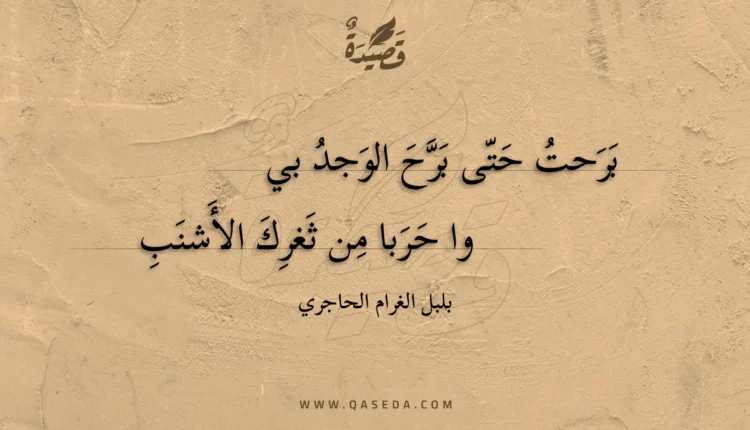 قَصِيدَةٌ
بَرَحتُ حَتّى بَرَّحَ الوَجدُ بي
وا حَرَبا مِن ثَغرِكَ الأَشنَبِ
بلبل الغرام الحاجري
WWW.QASEDA.COM